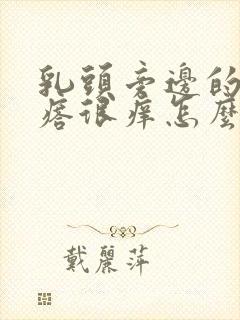 乳頭旁邊的
痦很痒怎麼
戴麗萍